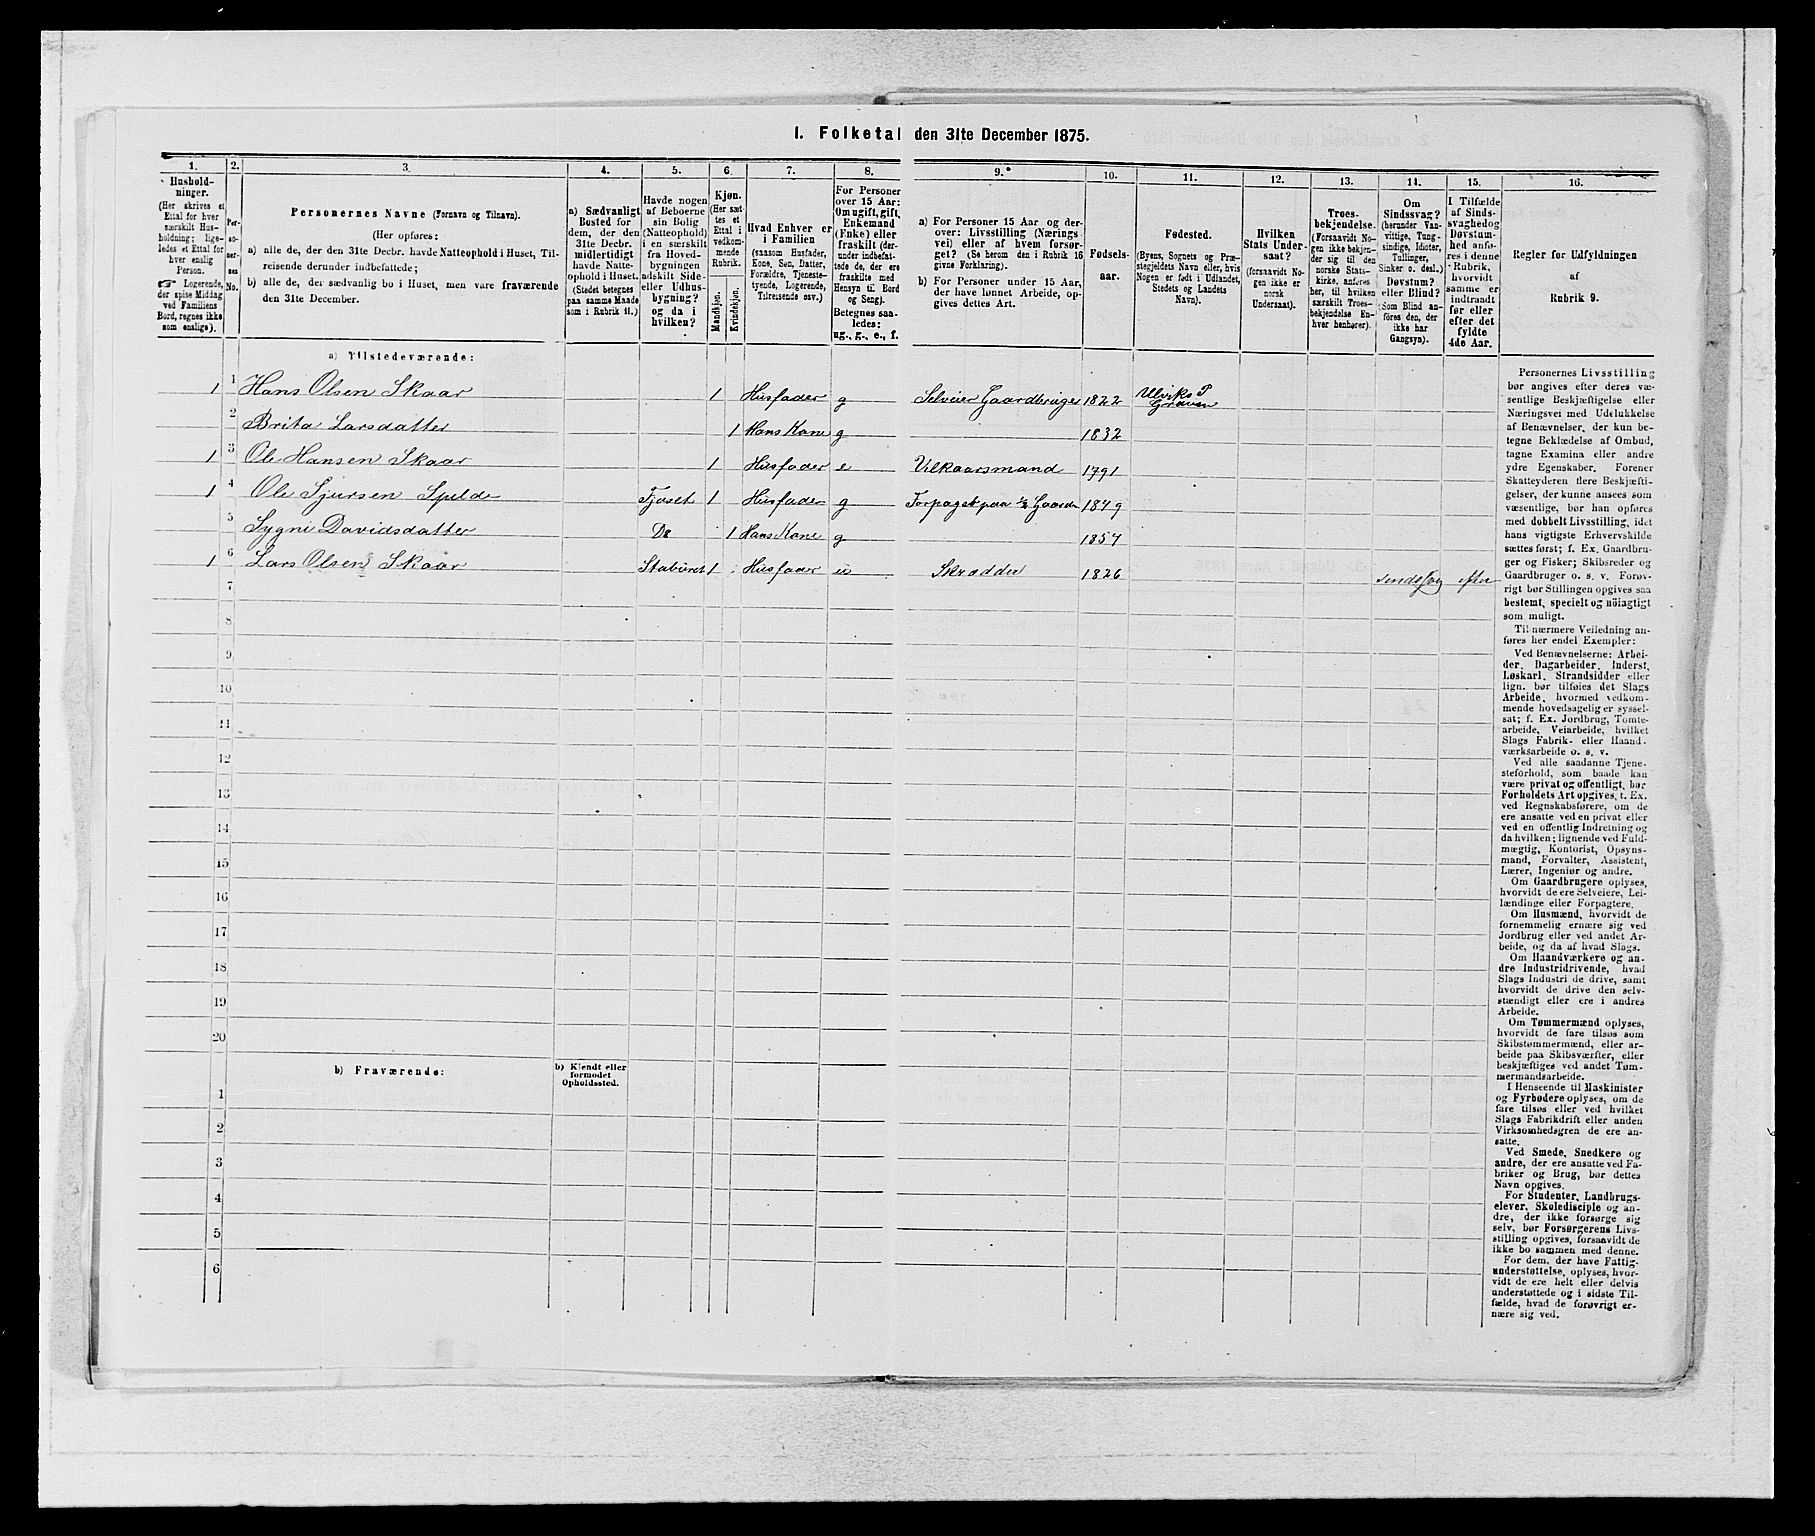 I. Folketal den 31te December 1875.
1. 2. 3. 4. 5. 6. 7. 8. 9. 10. 11. 12. 13. 14. 15. 16.
Hushold-
ninger.
(Her skrives et
Ettal for hver
særskilt Hus-
holdning; lige-
ledes et Ettal for
hver enslig
Person.
☞ Logerende,
der spise Middag
ved Familiens
Bord, regnes ikke
som enslige).
Per-
so-
ner-
nes
No.
Personernes Navne (Fornavn og Tilnavn).
(Her opføres:
a) alle de, der den 31te Decbr. havde Natteophold i Huset, Til-
reisende derunder indbefattede;
b) alle de, der sædvanlig bo i Huset, men vare fraværende
den 31te December.
a) Sædvanligt
Bosted for
dem, der den
31te Decbr.
midlertidigt
havde Natte-
ophold i Huset.
(Stedet betegnes
paa samme Maade
som i Rubrik 11.)
Havde nogen
af Beboerne
sin Bolig
(Natteophold)
i en særskilt
fra Hoved-
bygningen
adskilt Side-
eller Udhus-
bygning?
og da i
hvilken?
Kjøn.
(Her sæt-
tes et
Ettal i
vedkom-
mende
Rubrik.
Mandkjøn.
Kvindekjøn.
Hvad Enhver er
i Familien
(saasom Husfader,
Kone, Søn, Datter,
Forældre, Tjeneste-
tyende, Logerende,
Tilreisende osv.)
For Personer
over 15 Aar:
Om ugift, gift,
Enkemand
(Enke) eller
fraskilt (der-
under indbefat-
tede de, der ere
fraskilte med
Hensyn til Bord
og Seng).
Betegnes saa-
ledes:
ug., g., e., f.
a) For Personer 15 Aar og der-
over: Livsstilling (Nærings-
vei) eller af hvem forsør-
get? (Se herom den i Rubrik 16
givne Forklaring).
b) For Personer under 15 Aar,
der have lønnet Arbeide, op-
gives dettes Art.
Fødsels-
aar.
Fødested.
(Byens, Sognets og Præ-
stegjeldets Navn eller, hvis
Nogen er født i Udlandet,
Stedets og Landets
Navn).
Hvilken
Stats Under-
saat?
(forsaavidt No-
gen ikke er
norsk
Undersaat).
Troes-
bekjendelse.
(Forsaavidt No-
gen ikke bekjen-
der sig til den
norske Stats-
kirke, anføres
her, til hvilken
særskilt Troes-
bekjendelse En-
hver henhører).
Om
Sindssvag?
(herunder Van-
vittige, Tung-
sindige, Idioter,
Tullinger,
Sinker o. desl.)
Døvstum?
eller Blind?
(Som Blind an-
føres den, der
ikke har
Gangsyn).
I Tilfælde
af Sinds-
svaghed og
Døvstum-
hed anfø-
res i denne
Rubrik,
hvorvidt
samme er
indtraadt
før eller
efter det
fyldte
4de Aar.
Regler for Udfyldningen
af
Rubrik 9.
a) Tilstedeværende:
1 1 Hans Olsen Skaar 1 Husfader g Selveier Gaardbruger 1822 Ulviks P Graven
2 Brita Larsdatter 1 Hans Kone g 1832
1 3 Ole Hansen Skaar 1 Husfader e Vilkaarsmand 1791
1 4 Ole Sjursen Spelde Fjøset 1 Husfader g Forpagt paa ½ Gaarden 1849
5 Sygni Davidsdatter Do 1 Hans Kone g 1854
1 6 Lars Olsen Skaar Staburet 1 Husfader u Skrædder 1826 sindssvag efter
7
8
9
10
11
12
13
14
15
16
17
18
19
20
b) Fraværende:
b) Kjendt eller
formodet
Opholdssted.
1
2
3
4
5
6
Personernes Livsstilling
bør angives efter deres væ-
sentlige Beskjæftigelse eller
Næringsvei med Udelukkelse
af Benævnelser, der kun be-
tegne Beklædelse af Ombud,
tagne Examina eller andre
ydre Egenskaber. Forener
Skatteyderen flere Beskjæfti-
gelser, der kunne ansees som
væsentlige, bør han opføres
med dobbelt Livsstilling, idet
hans vigtigste Erhvervskilde
sættes først; f. Ex. Gaardbru-
ger og Fisker; Skibsreder og
Gaardbruger o. s. v. Forøv-
rigt bør Stillingen opgives saa
bestemt, specielt og nöiagtigt
som muligt.
Til nærmere Veiledning an-
føres her endel Exempler:
Ved Benævnelserne: Arbei-
der, Dagarbeider, Inderst,
Løskarl, Strandsidder eller
lign. bør tilføies det Slags
Arbeide, hvormed vedkom-
mende hovedsagelig er syssel-
sat; f. Ex. Jordbrug, Tomte-
arbeide, Veiarbeide, hvilket
Slags Fabrik- eller Haand-
værksarbeide o. s. v.
Ved alle saadanne Tjene-
steforhold, som baade kan
være privat og offentligt, bør
Forholdets Art opgives, t. Ex.
ved Regnskabsførere, om de
ere ansatte ved en privat eller
ved en offentlig Indretning og
da hvilken; lignende ved Fuld-
mægtig, Kontorist, Opsyns-
mand, Forvalter, Assistent,
Lærer, Ingeniør og andre.
Om Gaardbrugere oplyses,
hvorvidt de ere Selveiere, Lei-
lændinge eller Forpagtere.
Om Husmænd, hvorvidt de
fornemmelig ernære sig ved
Jordbrug eller ved andet Ar-
beide, og da af hvad Slags.
Om Haandværkere og an-
dre Industridrivende, hvad
Slags Industri de drive, samt
hvorvidt de drive den selv-
stændigt eller ere i andres
Arbeide.
Om Tømmermænd oplyses,
hvorvidt de fare tilsøs som
Skibstømmermænd, eller ar-
beide paa Skibsværfter, eller
beskjæftiges ved andet Tøm-
mermandsarbeide.
I Henseende til Maskinister
og Fyrbødere oplyses, om de
fare tilsøs eller ved hvilket
Slags Fabrikdrift eller anden
Virksomhedsgren de ere an-
satte.
Ved Smede, Snedkere og
andre, der ere ansatte ved Fa-
briker og Brug, bør dettes
Navn opgives.
For Studenter, Landbrugs-
elever, Skoledisciple og an-
dre, der ikke forsørge sig
selv, bør Forsørgerens Livs-
stilling opgives, forsaavidt de
ikke bo sammen med denne.
For dem, der have Fattig-
understøttelse, oplyses, hvor-
vidt de ere helt eller delvis
understøttede og i sidste Til-
fælde, hvad de forøvrigt er-
nære sig ved.